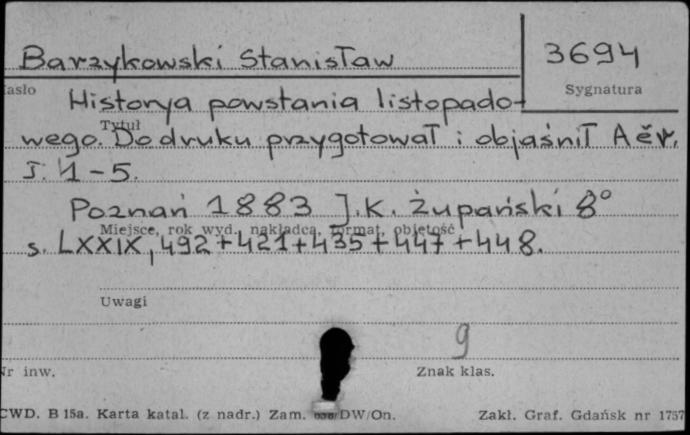 Barzykowski Stanisław
3694
Sygnatura
asło
Historya powstania listopado-
Tytuł
wego. Do druku przygotował i objaśnił Aër.
T. 1-5.
Poznań 1883 J.K. Żupański 8°
Miejsce, rok wyd., nakładca, format, objętość
s. LXXIX, 492+421+435+447+448.
Uwagi
9
Nr inw.
Znak klas.
CWD. B 15a. Karta katal. (z nadr.) Zam. DW/On.
Zakł. Graf. Gdańsk nr 1757